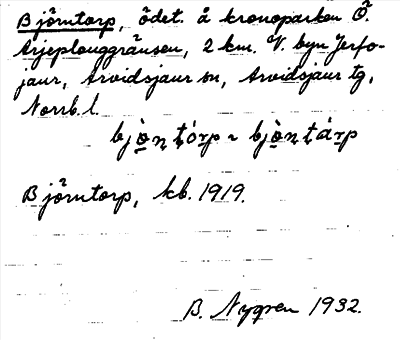 Björntorp, ödet. å kronoparken Ö.
Arjeplouggränsen, 2 km. V. byn Jerfo-
jaur, Arvidsjaur sn, Arvidsjaur tg,
Norrb. l.
bjò̱n tó̱rp ~ bjò̱n tárp
Björntorp, kb. 1919.
B. Nygren 1932.